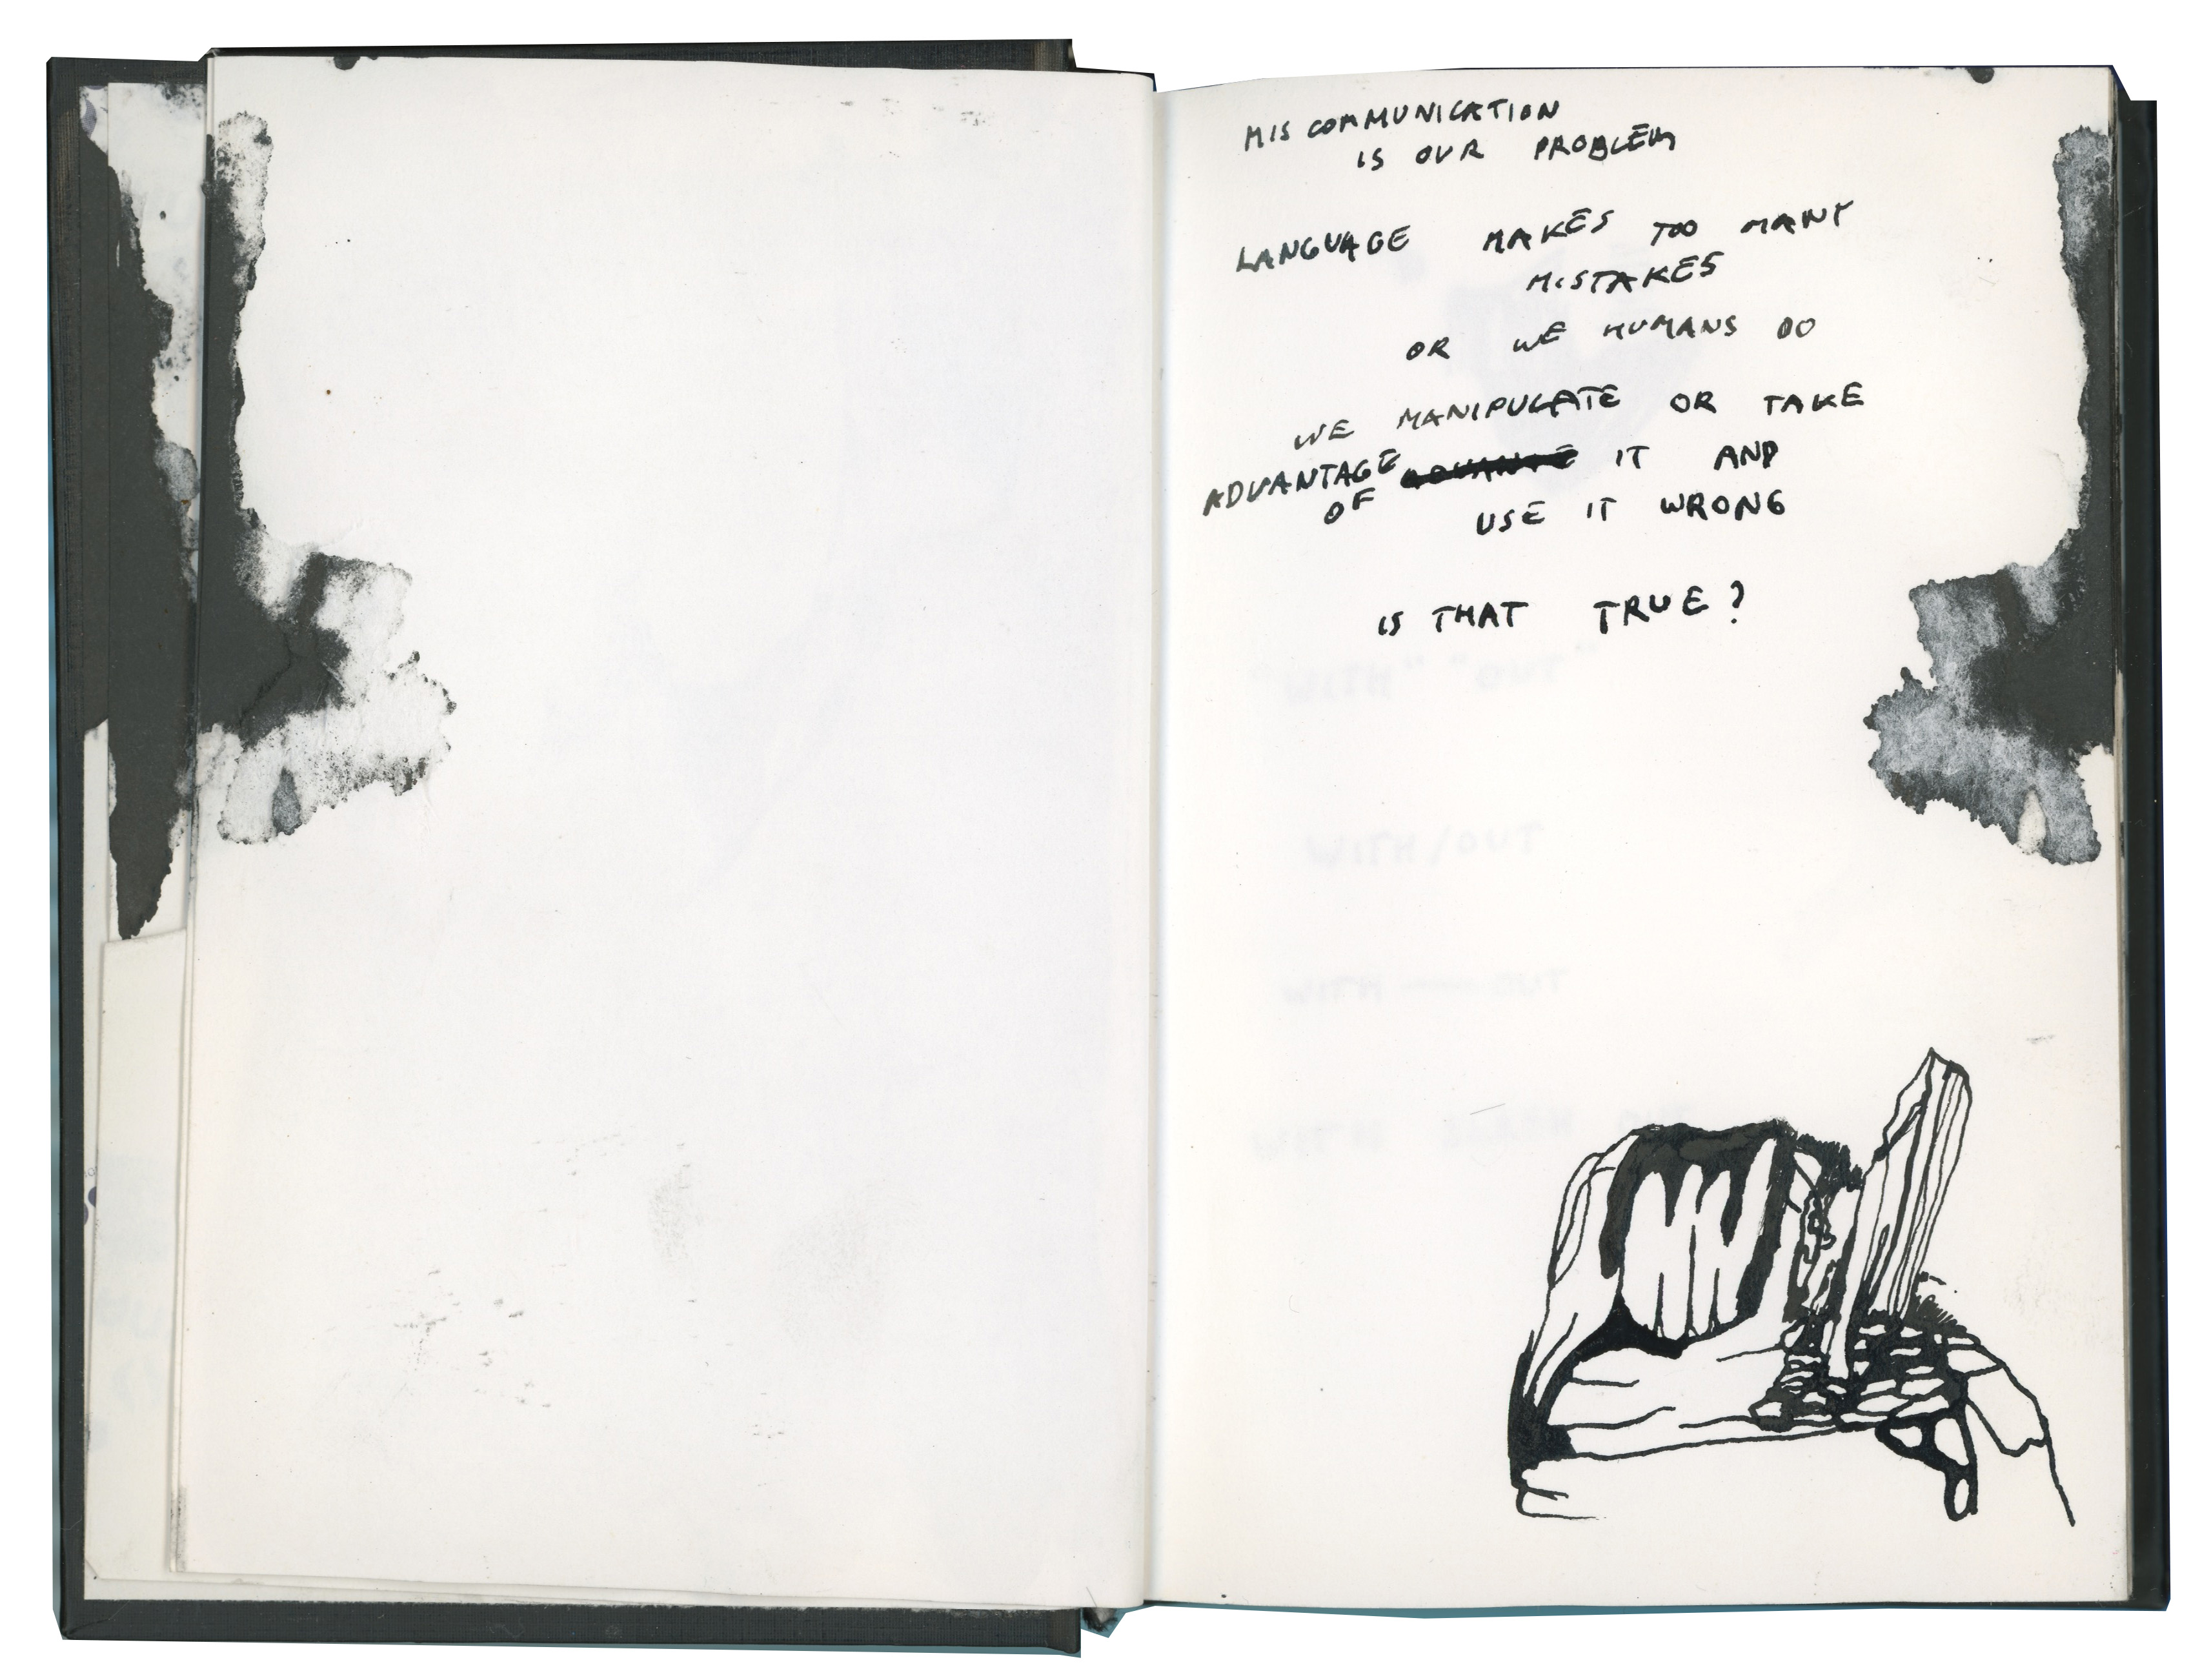 MIS COMMUNICATION
IS OUR PROBLEM
LANGUAGE MAKES TOO MANY
MISTAKES
OR WE HUMANS DO
WE MANIPULATE OR TAKE
ADVANTAGE IT AND
OF USE IT WRONG
IS THAT TRUE?
"WITH" "OUT"
WITH/OUT
WITH — OUT
WITH OUT